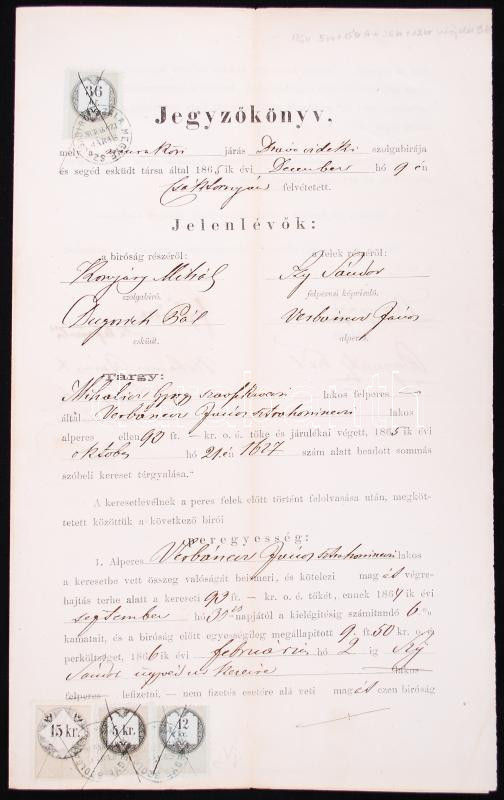 36
Jegyzőkönyv.
mely a muraközi járás Dráva vidéki szolgabirája
és segéd esküdt társa által 1865 ik évi December hó 9 én
Csáktornyán felvétetett.
Jelenlévők:
a biróság részéről: a felek részéről:
Mihál Szy Sándor
szolgabiró. felperesi képviselő.
Dugovich Pál Verbánecz János
esküdt. alperes.
Tárgy:
Mihalicz György lakos felperes —
által Verbánecz János lakos
alperes ellen 90 ft. — kr. o. é. tőke és járulékai végett, 1865 ik évi
október hó 21 én 1627 szám alatt beadott sommás
szóbeli kereset térgyalása."
A keresetlevélnek a peres felek előtt történt felolvasása után, megköt-
tetett közöttük a következő birói
peregyesség:
1. Alperes Verbánecz János lakos
a keresetbe vett összeg valóságát beismeri, és kötelezi magát végre-
hajtás terhe alatt a kereseti 93 ft. — kr. o. é. tőkét, ennek 1864 ik évi
september hó 30 napjától a kielégitésig számitandó 6 %
kamatait, és a biróság előtt egyességileg megállapitott 9 ft. 50 kr. o. é.
perköltséget, 1866 ik évi februárius hó 2 ig Szy
Sándor ügyvéd úr kezeire lakos
felperes lefizetni, — nem fizetés esetére alá veti magát ezen biróság
15 kr. 5 kr. 12 kr.